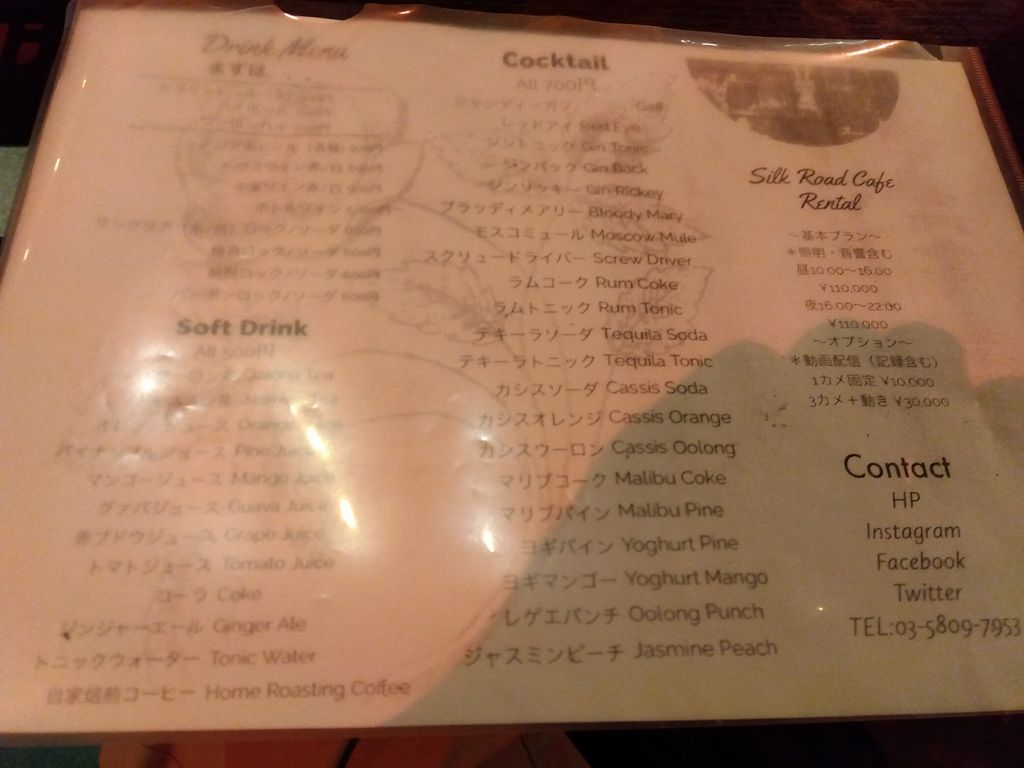 Drink Menu
まずは、、、
サングリア（赤/白）ロック/ソーダ 600円
Soft Drink
All 500円
ウーロン茶 Oolong Tea
ジャスミン茶 Jasmine Tea
オレンジジュース Orange Juice
パイナップルジュース Pine Juice
マンゴージュース Mango Juice
グァバジュース Guava Juice
赤ブドウジュース Grape Juice
トマトジュース Tomato Juice
コーラ Coke
ジンジャーエール Ginger Ale
トニックウォーター Tonic Water
自家焙煎コーヒー Home Roasting Coffee
Cocktail
All 700円
シャンディーガフ
レッドアイ Red Eye
ジントニック Gin Tonic
ジンバック Gin Back
ジンリッキー Gin Rickey
ブラッディメアリー Bloody Mary
モスコミュール Moscow Mule
スクリュードライバー Screw Driver
ラムコーク Rum Coke
ラムトニック Rum Tonic
テキーラソーダ Tequila Soda
テキーラトニック Tequila Tonic
カシスソーダ Cassis Soda
カシスオレンジ Cassis Orange
カシスウーロン Cassis Oolong
マリブコーク Malibu Coke
マリブパイン Malibu Pine
ヨギパイン Yoghurt Pine
ヨギマンゴー Yoghurt Mango
レゲエパンチ Oolong Punch
ジャスミンピーチ Jasmine Peach
Silk Road Cafe
Rental
～基本プラン～
＊照明・音響含む
昼10:00～16:00
¥110,000
夜16:00～22:00
¥110,000
～オプション～
＊動画配信（記録含む）
1カメ固定 ¥10,000
3カメ＋動き ¥30,000
Contact
HP
Instagram
Facebook
Twitter
TEL:03-5809-7953